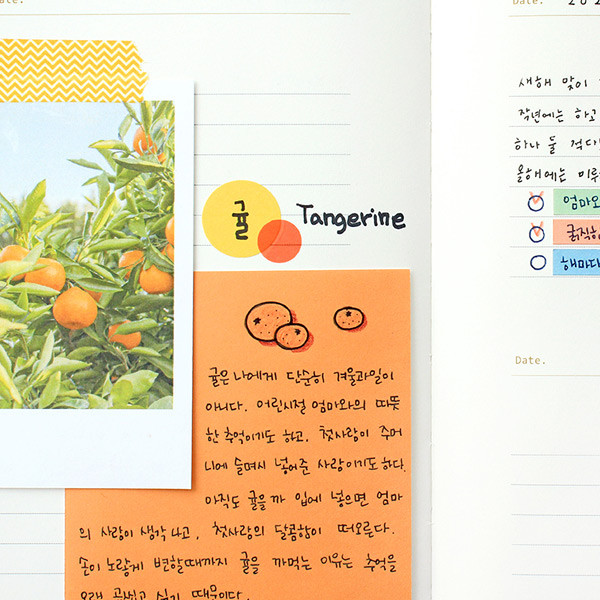 Date.
귤 Tangerine
귤은 나에게 단순히 겨울과일이
아니다. 어린시절 엄마와의 따뜻
한 추억이기도 하고, 첫사랑이 주머
니에 슬며시 넣어준 사랑이기도 하다.
아직도 귤을 까 입에 넣으면 엄마
의 사랑이 생각 나고, 첫사랑의 달콤함이 떠오른다.
손이 노랗게 변할때까지 귤을 까먹는 이유는 추억을
오래 곱씹고 싶기 때문이다.
Date. 202
새해 맞이
작년에는 하고
하나 둘 적다
올해에는 미루
엄마와
굵직하
해마다
Date.